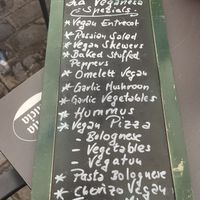 La Veganesa
Specials:
* Vegan Entrecot
* Rusian Salad
* Vegan Skewers
* Baked Stuffed
Peppers
* Omelett Vegan
* Garlic Mushroom
* Garlic Vegetables
* Hummus
* Vegan Pizza
- Bolognese
- Vegetables
- Vegatun
* Pasta Bolognese
* Chorizo Vegan